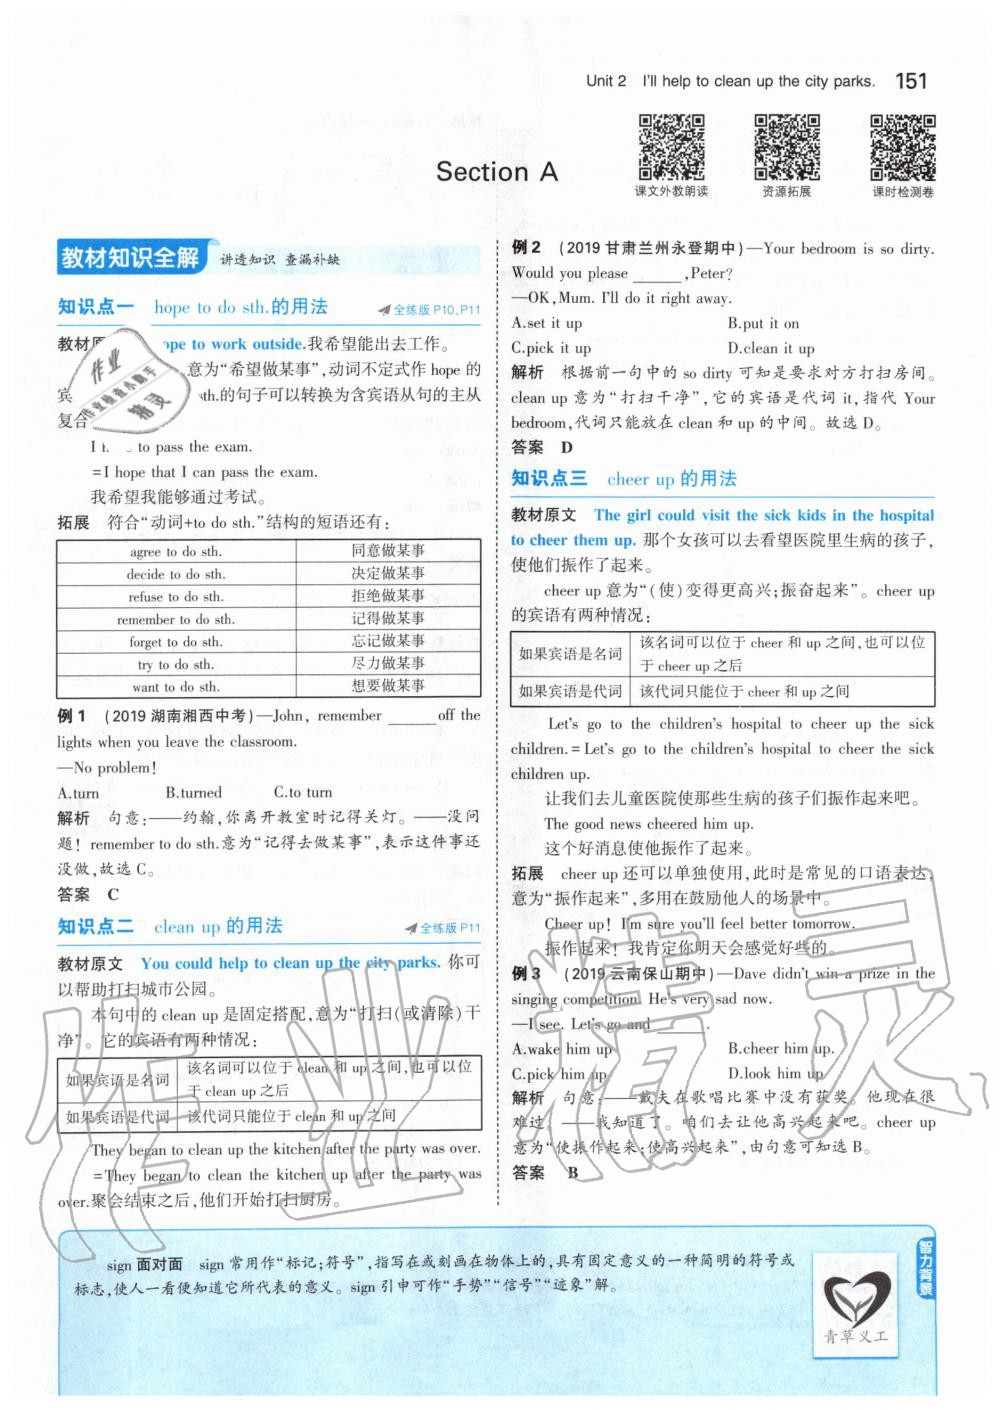 Unit 2 I'll help to clean up the city parks. 151
课文外教朗读
资源拓展
课时检测卷
Section A
教材知识全解 讲透知识 查漏补缺
知识点一 hope to do sth.的用法 全练版 P10、P11
ope to work outside.我希望能出去工作。
意为“希望做某事”,动词不定式作 hope 的
宾 sth.的句子可以转换为含宾语从句的主从
复合
to pass the exam.
=I hope that I can pass the exam.
我希望我能够通过考试。
拓展 符合“动词+to do sth.”结构的短语还有:
agree to do sth. 同意做某事
decide to do sth. 决定做某事
refuse to do sth. 拒绝做某事
remember to do sth. 记得做某事
forget to do sth. 忘记做某事
try to do sth. 尽力做某事
want to do sth. 想要做某事
例 1 (2019 湖南湘西中考)—John, remember ______off the
lights when you leave the classroom.
—No problem!
A.turn B.turned C.to turn
解析 句意:——约翰,你离开教室时记得关灯。——没问
题! remember to do sth.意为“记得去做某事”,表示这件事还
没做,故选 C。
答案 C
知识点二 clean up 的用法 全练版 P11
教材原文 You could help to clean up the city parks. 你可
以帮助打扫城市公园。
本句中的 clean up 是固定搭配,意为“打扫(或清除)干
净”。它的宾语有两种情况:
如果宾语是名词 该名词可以位于 clean 和 up 之间,也可以位
于 clean up 之后
如果宾语是代词 该代词只能位于 clean 和 up 之间
They began to clean up the kitchen after the party was over.
=They began to clean the kitchen up after the party was
over.聚会结束之后,他们开始打扫厨房。
例 2 (2019 甘肃兰州永登期中)—Your bedroom is so dirty.
Would you please ______,Peter?
—OK, Mum. I'll do it right away.
A.set it up B.put it on
C.pick it up D.clean it up
解析 根据前一句中的 so dirty 可知是要求对方打扫房间。
clean up 意为“打扫干净”,它的宾语是代词 it,指代 Your
bedroom,代词只能放在 clean 和 up 的中间。故选 D。
答案 D
知识点三 cheer up 的用法
教材原文 The girl could visit the sick kids in the hospital
to cheer them up. 那个女孩可以去看望医院里生病的孩子,
使他们振作了起来。
cheer up 意为“(使)变得更高兴;振奋起来”。cheer up
的宾语有两种情况:
如果宾语是名词 该名词可以位于 cheer 和 up 之间,也可以位
于 cheer up 之后
如果宾语是代词 该代词只能位于 cheer 和 up 之间
Let's go to the children's hospital to cheer up the sick
children. = Let's go to the children's hospital to cheer the sick
children up.
让我们去儿童医院使那些生病的孩子们振作起来吧。
The good news cheered him up.
这个好消息使他振作了起来。
拓展 cheer up 还可以单独使用,此时是常见的口语表达,
意为“振作起来”,多用在鼓励他人的场景中。
Cheer up! I'm sure you'll feel better tomorrow.
振作起来!我肯定你明天会感觉好些的。
例 3 (2019 云南保山期中)—Dave didn't win a prize in the
singing competition. He's very sad now.
—I see. Let's go and ______.
A.wake him up B.cheer him up.
C.pick him up D.look him up
解析 句意:——戴夫在歌唱比赛中没有获奖。他现在很
难过。——我知道了。咱们去让他高兴起来吧。cheer up
意为“使振作起来;使高兴起来”,由句意可知选 B。
答案 B
sign 面对面 sign 常用作“标记;符号”,指写在或刻画在物体上的,具有固定意义的一种简明的符号或
标志,使人一看便知道它所代表的意义。sign 引申可作“手势”“信号”“迹象”解。
智力背景
青草义工
作业
作业检查小助手
精灵
作业精灵